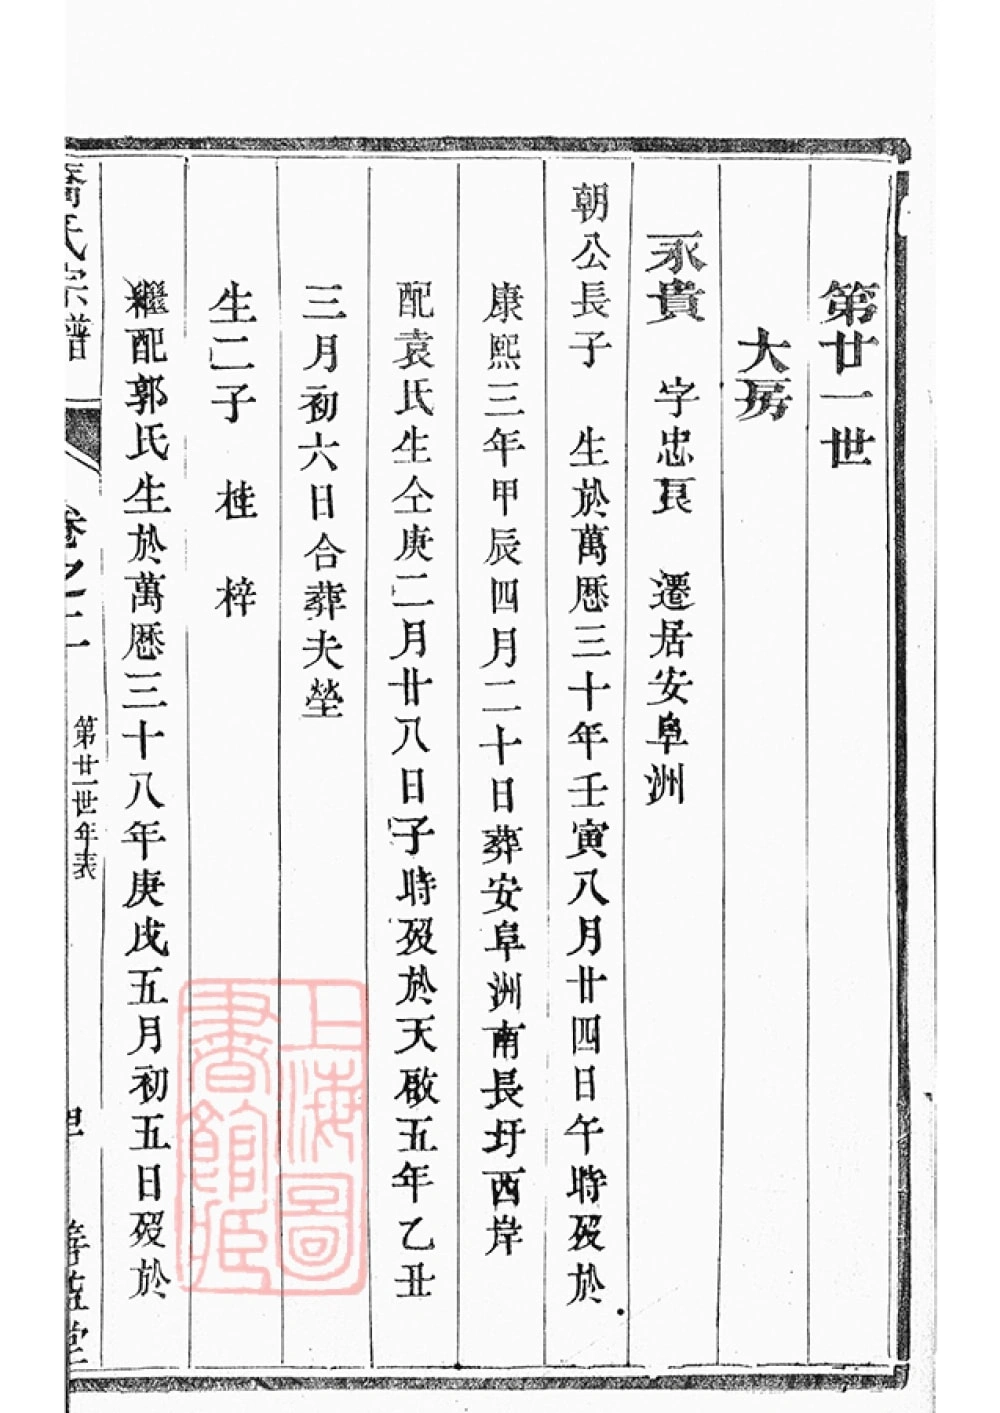 第廿一世
大房
永貴　字忠良　遷居安阜洲
朝公長子　生於萬厯三十年壬寅八月廿四日午時歿於
康熙三年甲辰四月二十日葬安阜洲南長圩西岸
配袁氏生仝庚二月廿八日子時歿於天啟五年乙丑
三月初六日合葬夫塋
生二子　桂　梓
繼配郭氏生於萬厯三十八年庚戌五月初五日歿於
氏宗譜
卷之二
第廿一世年表
堂
上海圖書館藏